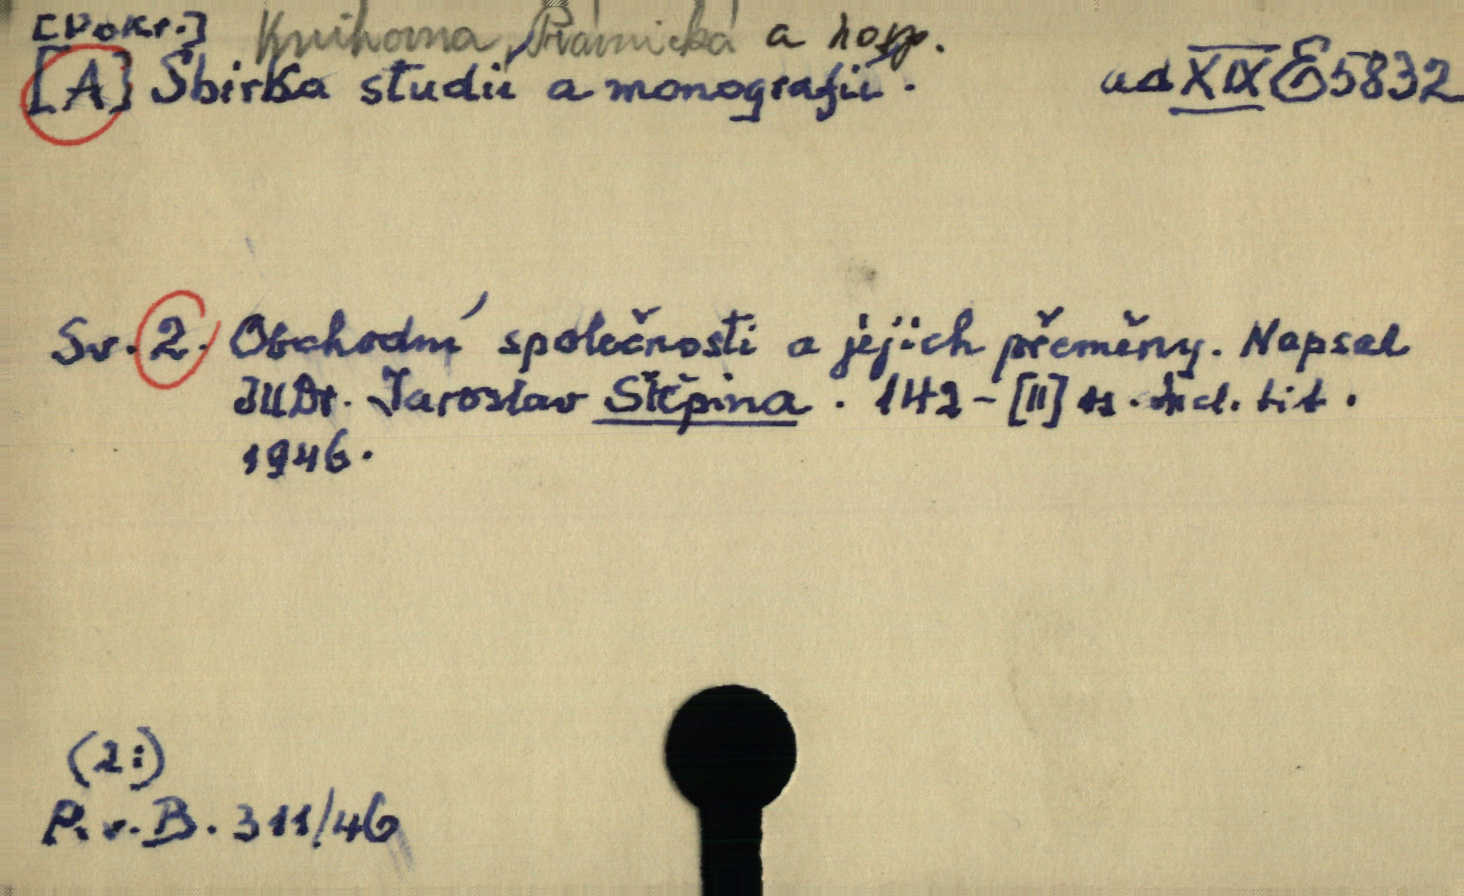 [Pokr.] Knihovna, Právnická a hosp.
[A] Sbírka studií a monografií. ad XIX E 5832
Sv. 2. Obchodní společnosti a jejich přeměny. Napsal
JUDr. Jaroslav Štěpina. 142-[II] ss. incl. tit.
1946.
(2i)
P. v. B. 311/46